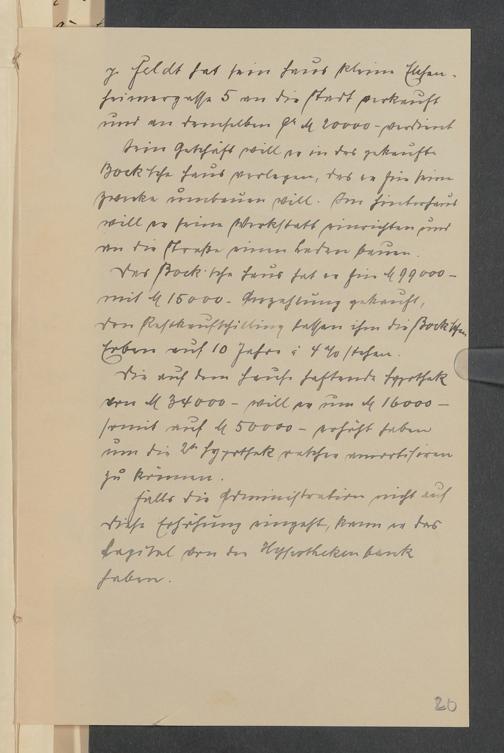 J. Feldt hat sein Haus kleine Eschen-
heimergasse 5 an die Stadt verkauft
und an demselben M 20000 - verdient
Sein Geschäft will er in das gekaufte
Bock'sche Haus verlegen, das er für seine
Zwecke umbauen will. Im Hinterhaus
will er seine Werkstatt einrichten und
an die Straße einen Laden bauen.
Das Bock'sche Haus hat er für M 99000 -
mit M 15000 - Anzahlung gekauft,
den Restkaufschilling lassen ihm die Bock'schen
Erben auf 10 Jahre à 4% stehen.
Die auf dem Hause haftende Hypothek
von M 34000 - will er um M 16000 -
somit auf M 50000 - erhöht haben
um die 2te Hypothek rascher amortisiren
zu können.
Falls die Administration nicht auf
diese Erhöhung eingeht, kann er das
Capital von der Hypothekenbank
haben.
26